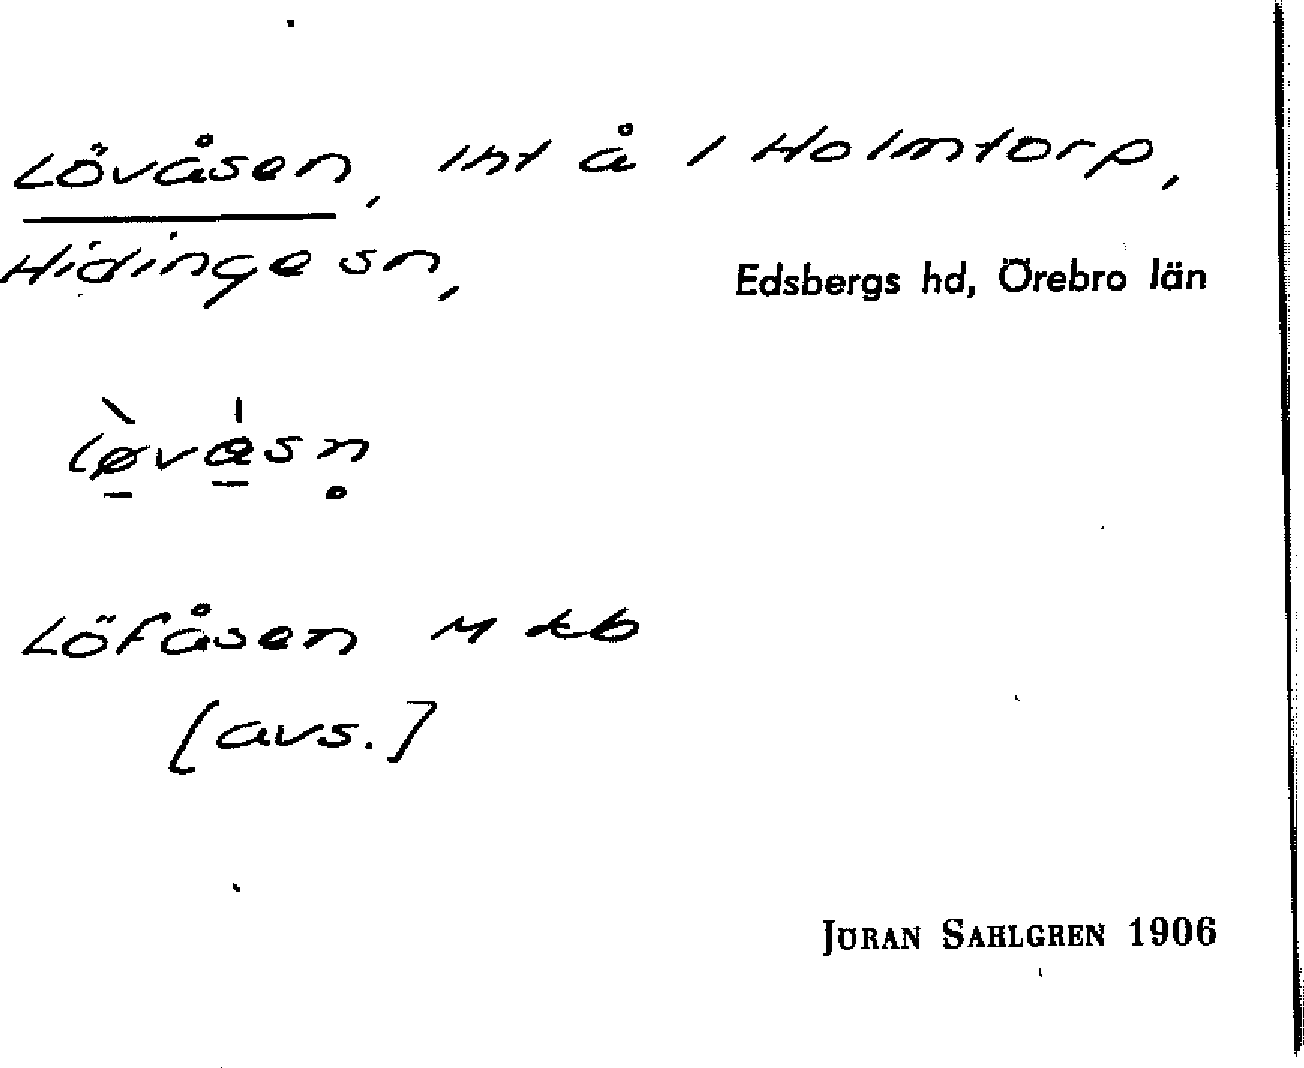 Lövåsen, int å / Holmtorp,
Hidinge sn, Edsbergs hd, Örebro län
lø̱̀va̱̍sn̥
Löfåsen M kb
[avs.]
JÖRAN SAHLGREN 1906